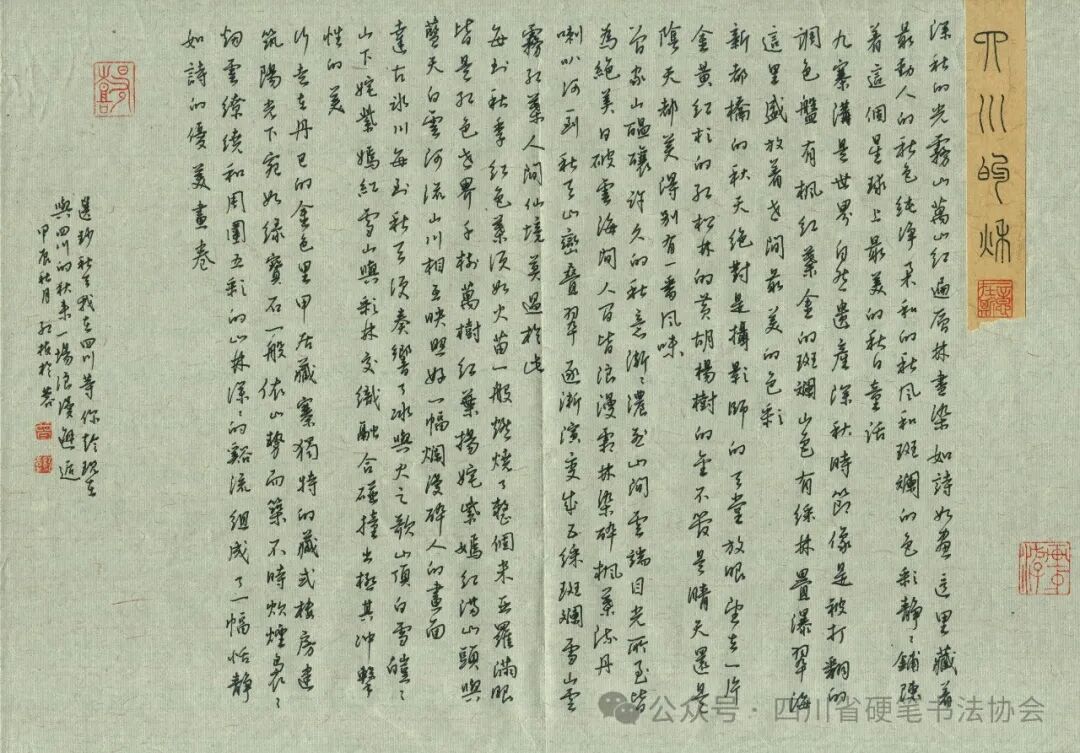 四川的秋
深秋的光霧山萬山紅遍層林盡染如詩如畫這里藏着
最動人的秋色純净柔和的秋風和斑斕的色彩静〻鋪陳
着這個星球上最美的秋日童話
九寨溝是世界自然遺産深秋時節像是被打翻的
調色盤有楓紅葉金的斑斕山色有綵林疊瀑翠海
這里盛放着世間最美的色彩
新都橋的秋天絶對是攝影師的天堂放眼望去一片
金黄紅杉的紅松林的黄胡楊樹的金不管是晴天還是
陰天都美得别有一番風味
曾家山醖釀許久的秋意漸〻濃於山間雲端目光所至皆
為絶美日破雲海間人百皆浪漫霜林染醉楓葉流丹
喇叭河一到秋天山巒疊翠逐漸演變成五綵斑斕雪山雲
霧紅葉人間仙境莫過於此
每到秋季紅色葉須如火苗一般燃燒了整個米亞羅滿眼
皆是紅色世界千樹萬樹紅葉揚姹紫嫣紅滿山頭與
藍天白雲河流山川相互映照好一幅爛漫醉人的畫面
達古冰川每到秋天須奏響了冰與火之歌山頂白雪皚〻
山下姹紫嫣紅雪山與彩林交織融合碰撞出極其冲擊
性的美
行走在丹巴的金色里甲居藏寨獨特的藏式樓房建
筑陽光下宛如緑寳石一般依山勢而築不時炊煙裊〻
烟雲繚繞和周圍五彩的山林深〻的谿流組成了一幅恬静
如詩的優美畫卷
選抄秋天我在四川等你於現在
與四川的秋來一場浪漫邂逅
甲辰秋月紅於蓉
公众号·四川省硬笔书法协会